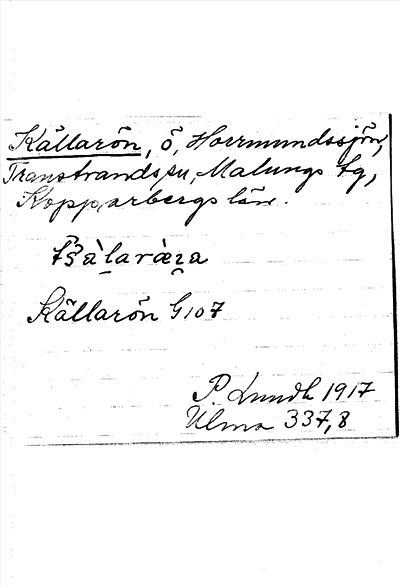 Källarön, ö, Horrmundssjön,
Transtrands sn, Malungs tg,
Kopparbergs län.
Källarön G107
P. Lundh 1917
Ulma 337,8